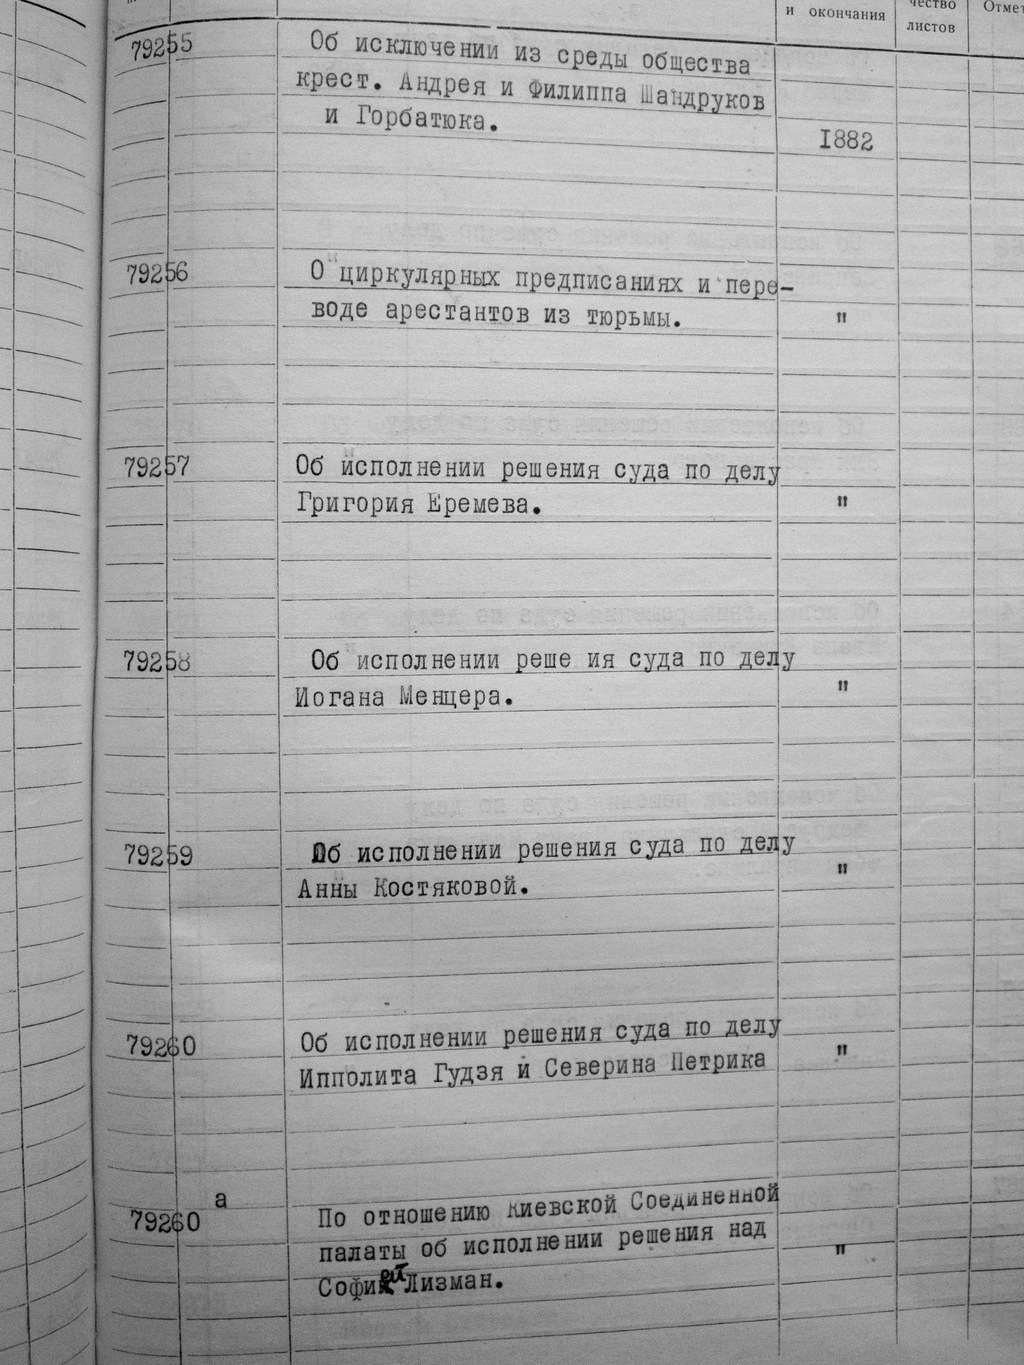 и окончания
чество
листов
Отмет
79255 Об исключении из среды общества
крест. Андрея и Филиппа Шандруков
и Горбатюка.
1882
79256 О циркулярных предписаниях и пере-
воде арестантов из тюрьмы. "
79257 Об исполнении решения суда по делу
Григория Еремева. "
79258 Об исполнении реше ия суда по делу
Иогана Менцера. "
79259 Об исполнении решения суда по делу
Анны Костяковой. "
79260 Об исполнении решения суда по делу
Ипполита Гудзя и Северина Петрика "
79260 а По отношению Киевской Соединенной
палаты об исполнении решения над
Софией Лизман. "